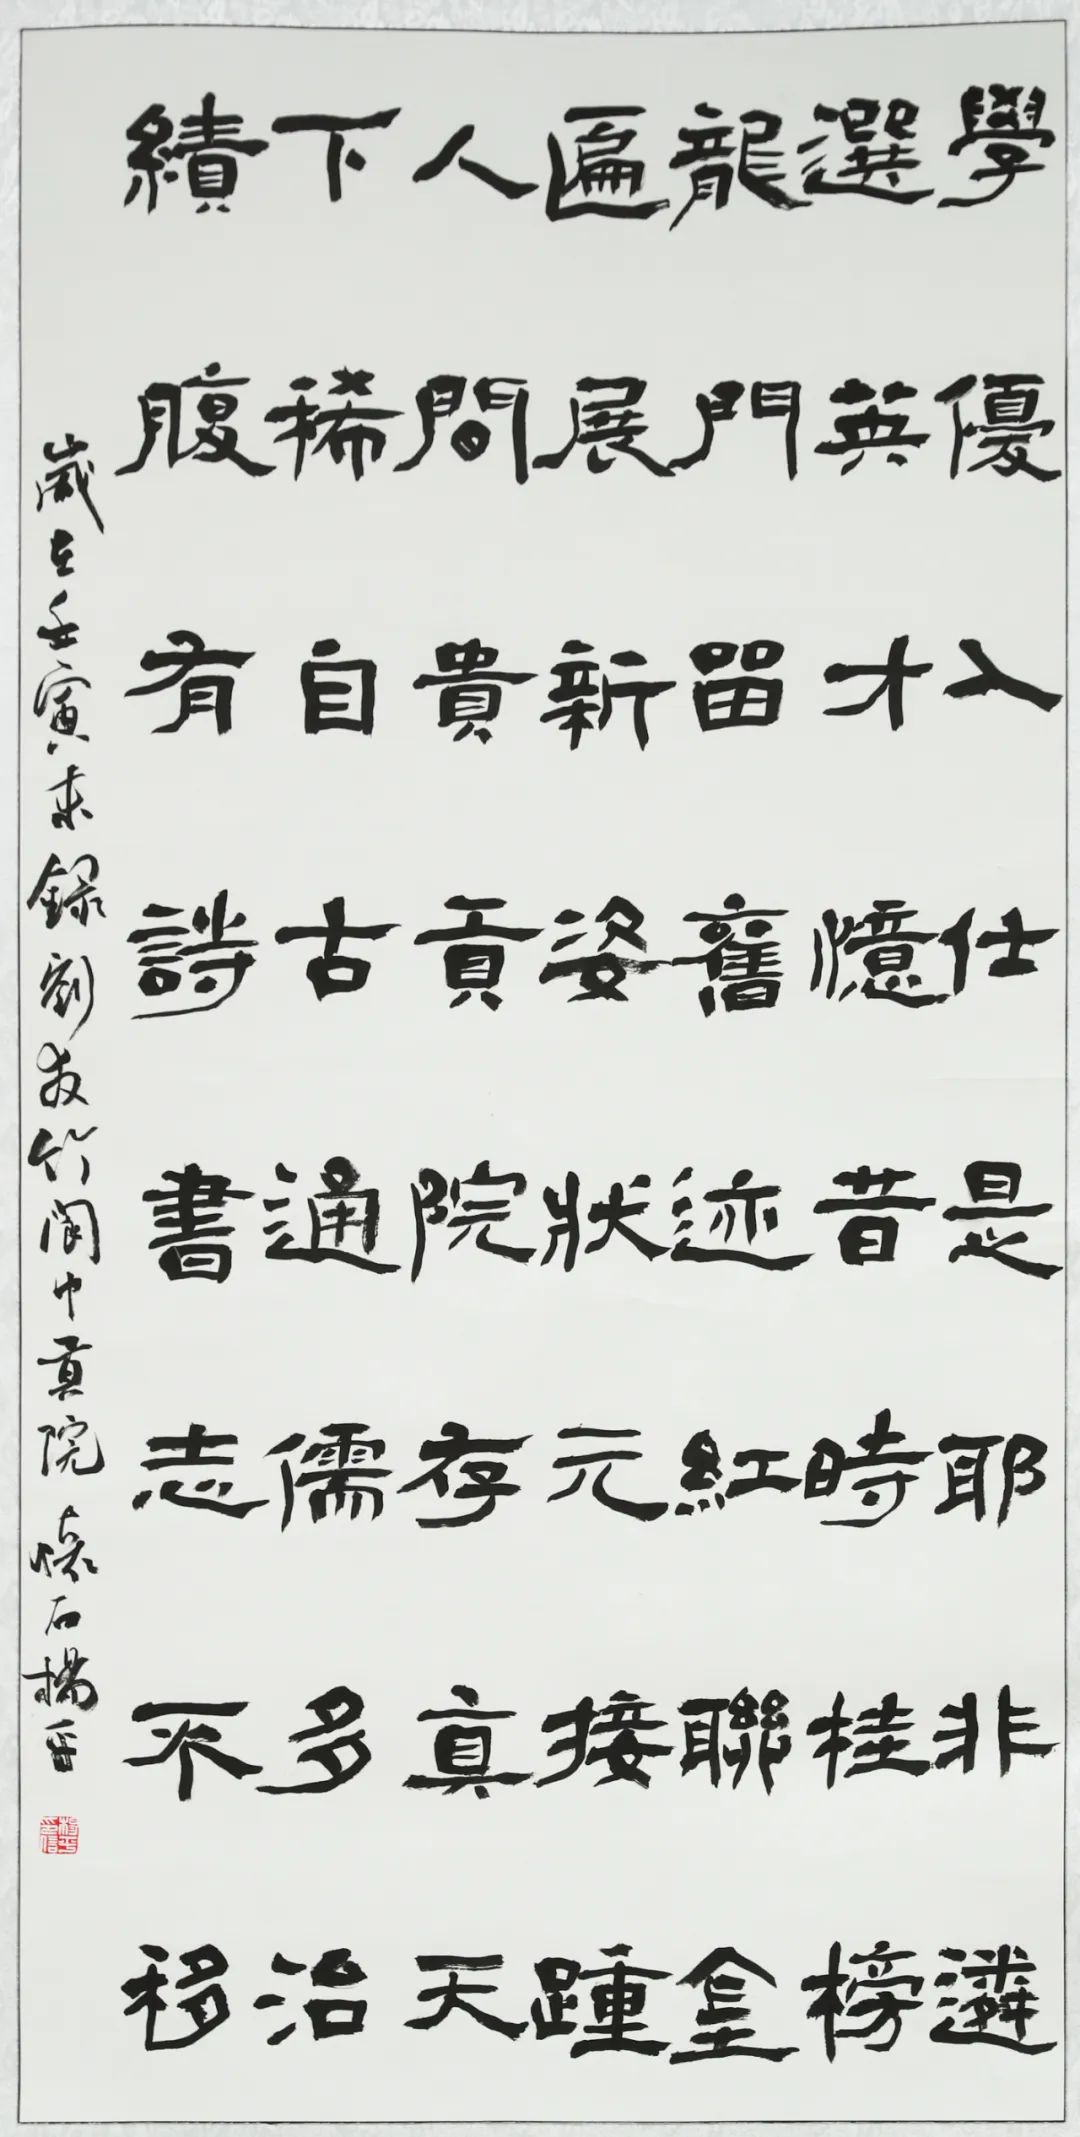 學優入仕是耶非遴
選英才憶昔時桂榜
龍門留舊迹紅聯金
匾展新姿狀元接踵
人間貴貢院存真天
下稀自古通儒多治
績腹有詩書志不移
歲在壬寅錄劉友竹閬中貢院 懷石楊平
楊平印信